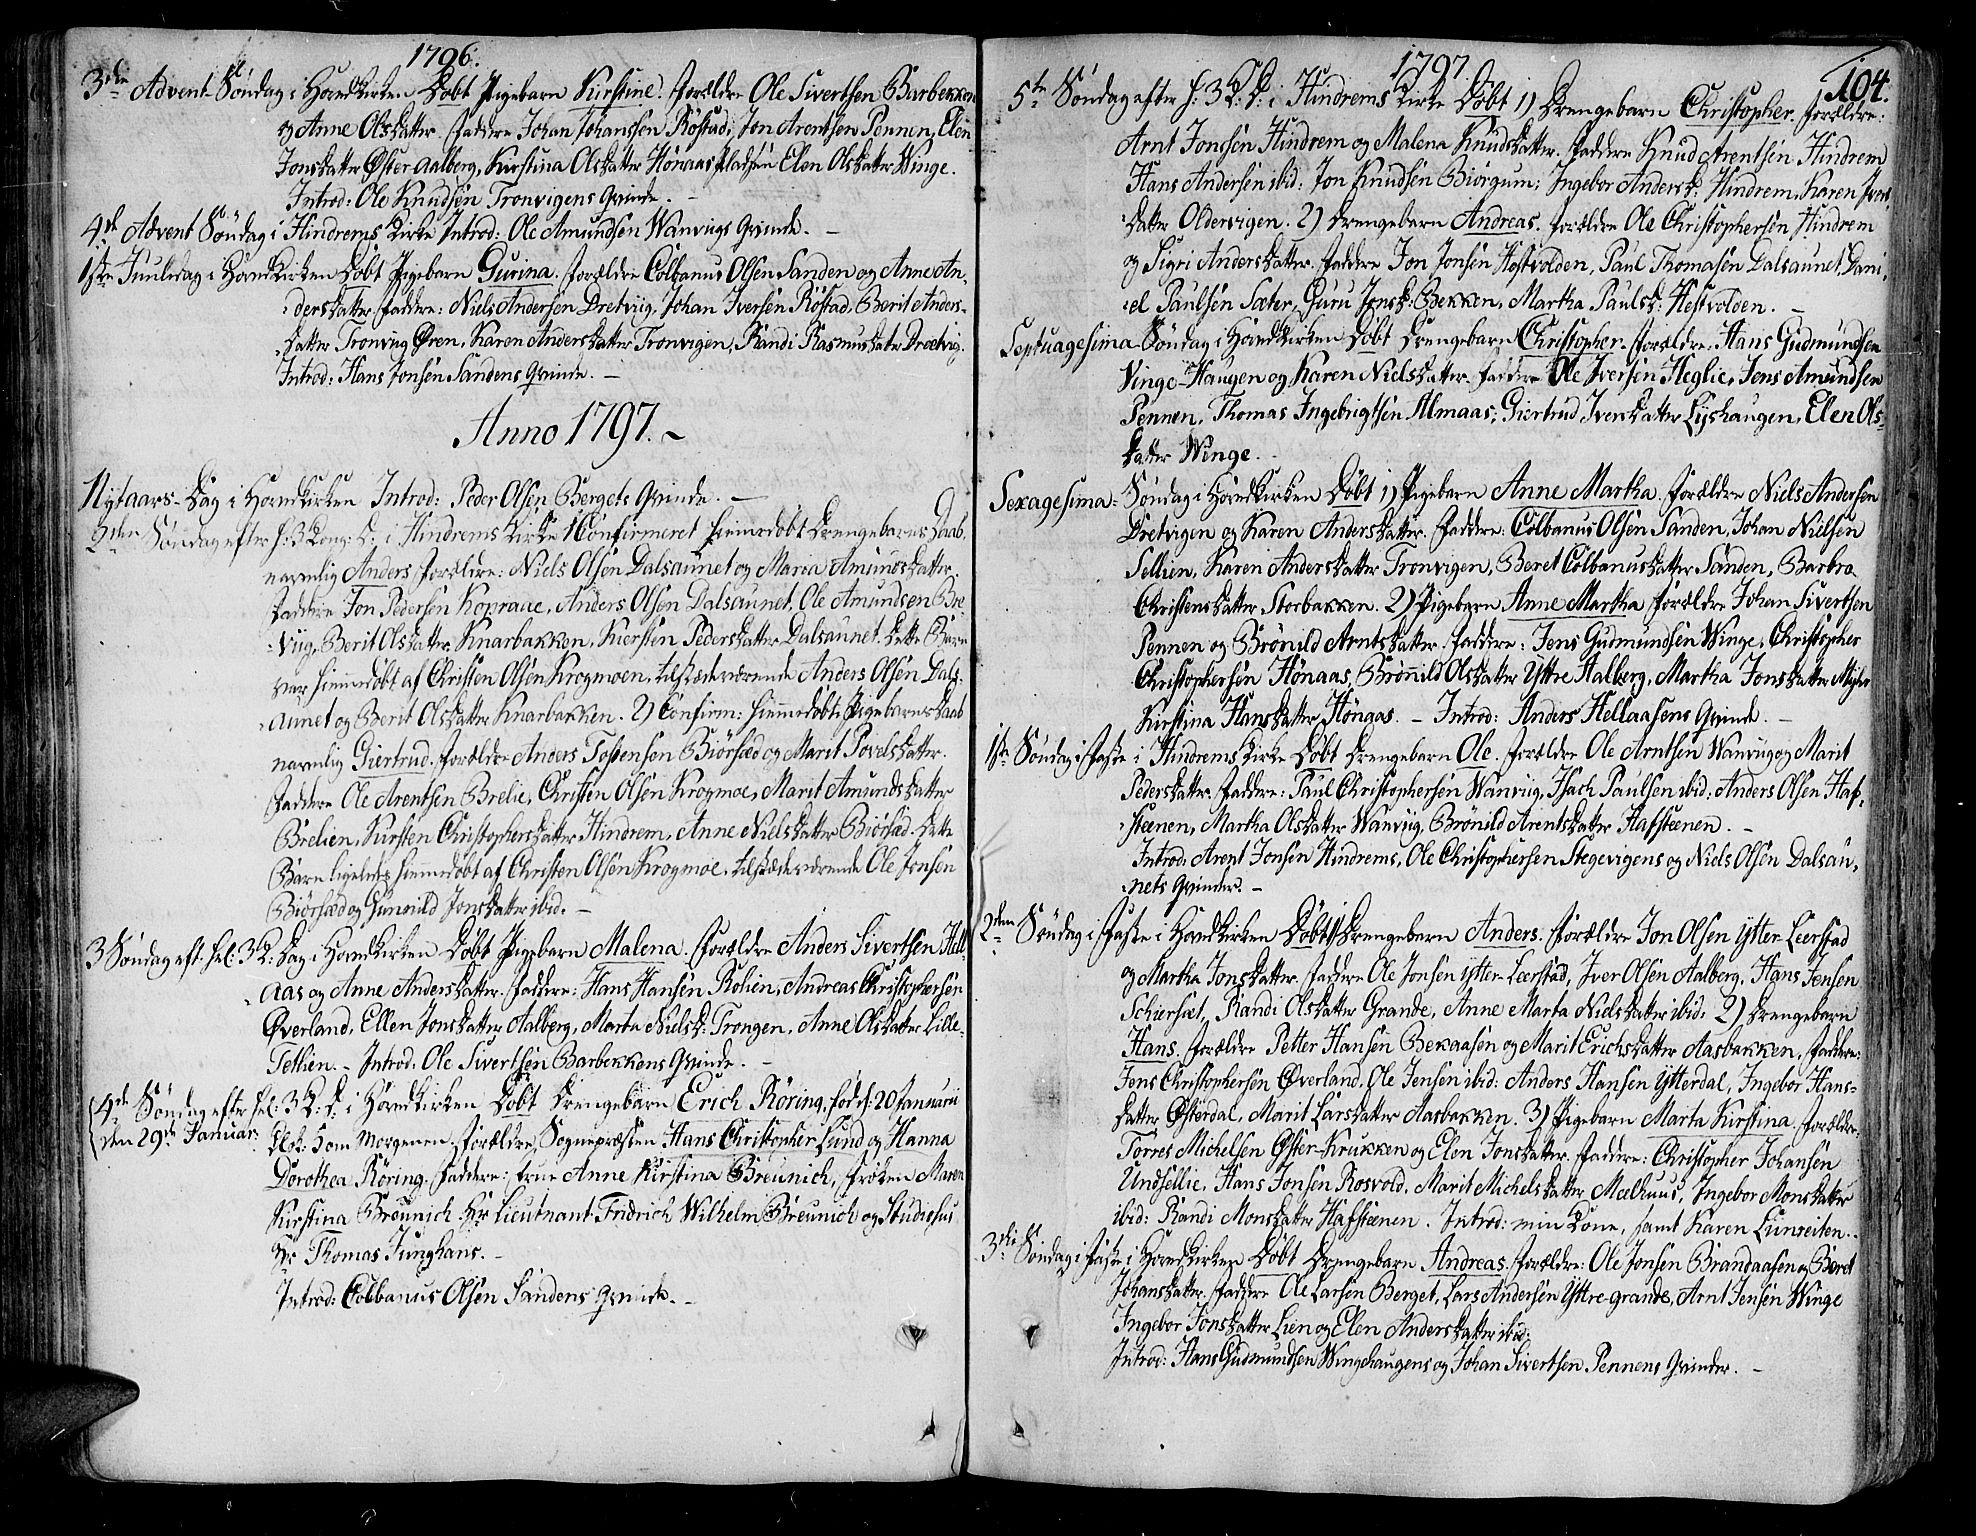 1796.
3die Advent Søndag i Hovedkirken Døbt Pigebarn Kirstine. Forældre Ole Sivertsen Barbekken
og Anne Olsdatter. Faddere Johan Johanssen Røstad, Jon Arentsen Pennen, Elen
Jonsdatter Øster Aalberg, Kirstina Olsdatter Hønaaspladsen Elen Olsdatter Winge.
Introd: Ole Knudsen Tronvigens Qvinde. -
4de Advent Søndag i Hindrems Kirke Introd: Ole Amundsen Wanviigs Qvinde. -
1ste Juuledag i Hovedkirken Døbt Pigebarn Gurina. Forældre Colbanus Olsen Sanden og Anne An-
dersdatter. Faddere: Niels Andersen Dretviig, Johan Iversen Røstad, Berit Anders-
datter Tronvig Øren, Karen Andersdatter Tronvigen, Randi Rasmusdatter Dretvig.
Introd: Hans Jonsen Sandens Qvinde. -
Anno 1797. ~
Nytaars-Dag i Hovedkirken Introd: Peder Olsen Bergets Qvinde. -
2den Søndag efter H: 3 Kong: D: i Hindrems Kirke 1 Confirmeret hiemmedøbt Drengebarns Daab,
navnlig Anders Forældre: Niels Olsen Dalsaunet og Maria Amundsdatter.
Faddere Jon Pedersen Kopraae, Anders Olsen Dalsaunet, Ole Amundsen Bre-
viig, Berit Olsdatter Knarbakken, Kiersten Pedersdatter Dalsaunet. Dette Barn
var hiemmedøbt af Christen Olsen Krogmoen, tilstædeværende Anders Olsen Dals-
aunet og Berit Olsdatter Knarbakken. 2) Confirm: hiemmedøbt Pigebarns Daab
navnlig Giertrud. Forældre Anders Tostensen Biørsæd og Marit Povelsdatter.
Faddere Ole Arentsen Brelie, Christen Olsen Krogmoe, Marit Amundsdatter
Brelien, Kirsten Christophersdatter Hindrem, Anne Nielsdatter Biørsæd. Dette
Barn ligeledes hiemmedøbt af Christen Olsen Krogmoe, tilstædeværende Ole Jonsen
Biørsæd og Gunnild Jonsdatter ibid. -
3 Søndag eft. Hel: 3 K: Dag i Hovedkirken Døbt Pigebarn Malena. Forældre Anders Sivertsen Hell-
aas og Anne Andersdatter. Faddere: Hans Hansen Rolien, Andreas Christophersen
Øverland, Ellen Jonsdatter Aalberg, Marta Nielsd: Trongen, Anne Olsdatter Lille-
Tetlien. - Introd: Ole Sivertsen Barbekkens Qvinde. -
4de Søndag efter Hel: 3 K: D: i Hovedkirken Døbt Drengebarn Erich Röring, fød d: 20 Januarii
den 29de Januar: Kl: 5 om Morgenen. Forældre Sognepræsten Hans Christopher Lund og Hanna
Dorothea Röring. Faddere: Frue Anne Kirstina Breunich, Frøken Maren
Kirstina Breunich Hr Lieutnant Fridrich Wilhelm Breunich og Studiosus
Hr Thomas Junghans. -
Introd: Colbanus Olsen Sandens Qvinde. -
1797.
104.
5te Søndag efter H: 3 K: D: i Hindrems Kirke Døbt 1) Drengebarn Christopher. Forældre:
Arnt Jonsen Hindrem og Malena Knudsdatter. Faddere Knud Arentsen Hindrem
Hans Andersen ibid: Jon Knudsen Biørgum; Ingebor Andersd: Hindrem, Karen Ivers-
datter Oldervigen. 2) Drengebarn Andreas. Forældre Ole Christophersen Hindrem
og Sigri Andersdatter. Faddere Jon Jonsen Hestvolden, Paul Thomasen Dalsaunet, Dani-
el Paulsen Sæter, Guru Jonsd: Bekken, Martha Paulsd: Hestvolden. -
Septuagesima Søndag i Hovedkirken Døbt Drengebarn Christopher. Forældre. Hans Gudmundsen
Vinge-Haugen og Karen Nielsdatter. Faddere Ole Iversen Heglie, Jens Amundsen
Pennen, Thomas Ingebrigtsen Almaas, Giertrud Iversdatter Lyshaugen, Elen Ols-
datter Winge. -
Sexagesima Søndag i Hovedkirken Døbt 1) Pigebarn Anne Martha. Forældre Niels Andersen
Dretvigen og Karen Andersdatter. Faddere: Colbanus Olsen Sanden, Johan Nielsen
Sellien, Karen Andersdatter Tronvigen, Beret Colbanusdatter Sanden, Barbro
Christensdatter Storbakken. 2) Pigebarn Anne Martha Forældre Johan Sivertsen
Pennen og Brønild Arntsdatter. Faddere: Jens Gudmundsen Winge, Christopher
Christophersen Hønaas, Brønild Olsdatter Yttre Aalberg, Martha Jonsdatter
Kirstina Hansdatter Høngas. - Introd: Anders Hellaasens Qvinde. -
1ste Søndag i Faste i Hindrems Kirke Døbt Drengebarn Ole. Forældre Ole Arntsen Wanviig og Marit
Pedersdatter. Faddere: Paul Christophersen Wanviig, Isach Paulsen ibid: Anders Olsen Haf-
steenen, Martha Olsdatter Wanviig, Brønild Arentsdatter Hafsteenen. -
Introd: Arent Jonsen Hindrems, Ole Christophersen Stegevigens og Niels Olsen Dalsau-
nets Qvinder. -
2den Søndag i Faste i Hovedkirken Døbt 1) Drengebarn Anders. Forældre Jon Olsen ytter Leerstad
og Martha Jonsdatter. Faddere Ole Jonsen ytter-Leerstad, Iver Olsen Aalberg, Hans Jensen
Schiersæt, Randi Olsdatter Grande, Anne Marta Nielsdatter ibid: 2) Drengebarn
Hans. Forældre Petter Hansen Bekaasen og Marit Erichsdatter Aasbakken. Faddere:
Jens Christophersen Øverland, Ole Jensen ibid: Anders Hansen Ytterdal, Ingebor Hans-
datter Østerdal, Marit Larsdatter Aasbakken. 3) Pigebarn Marta Kirstina. Forældre:
Torres Michelsen Øster-Krukken og Elen Jonsdatter. Faddere: Christopher Johansen
Undsellie, Hans Jonsen Rosvold, Marit Michelsdatter Meelhuus, Ingebor Monsdatter
ibid: Randi Monsdatter Hafsteenen. Introd: min Kone, samt Karen Lunseiten. -
3die Søndag i Faste i Hovedkirken Døbt Drengebarn Andreas. Forældre: Ole Jonsen Brandaasen og Beret
Johansdatter. Faddere Ole Larsen Berget, Lars Andersen Yttre-grande, Arnt Jensen Winge
Ingebor Jonsdatter Lien og Elen Andersdatter ibid:
Introd: Hans Gudmundsen Wingehaugens og Johan Sivertsen Pennens Qvinder. -